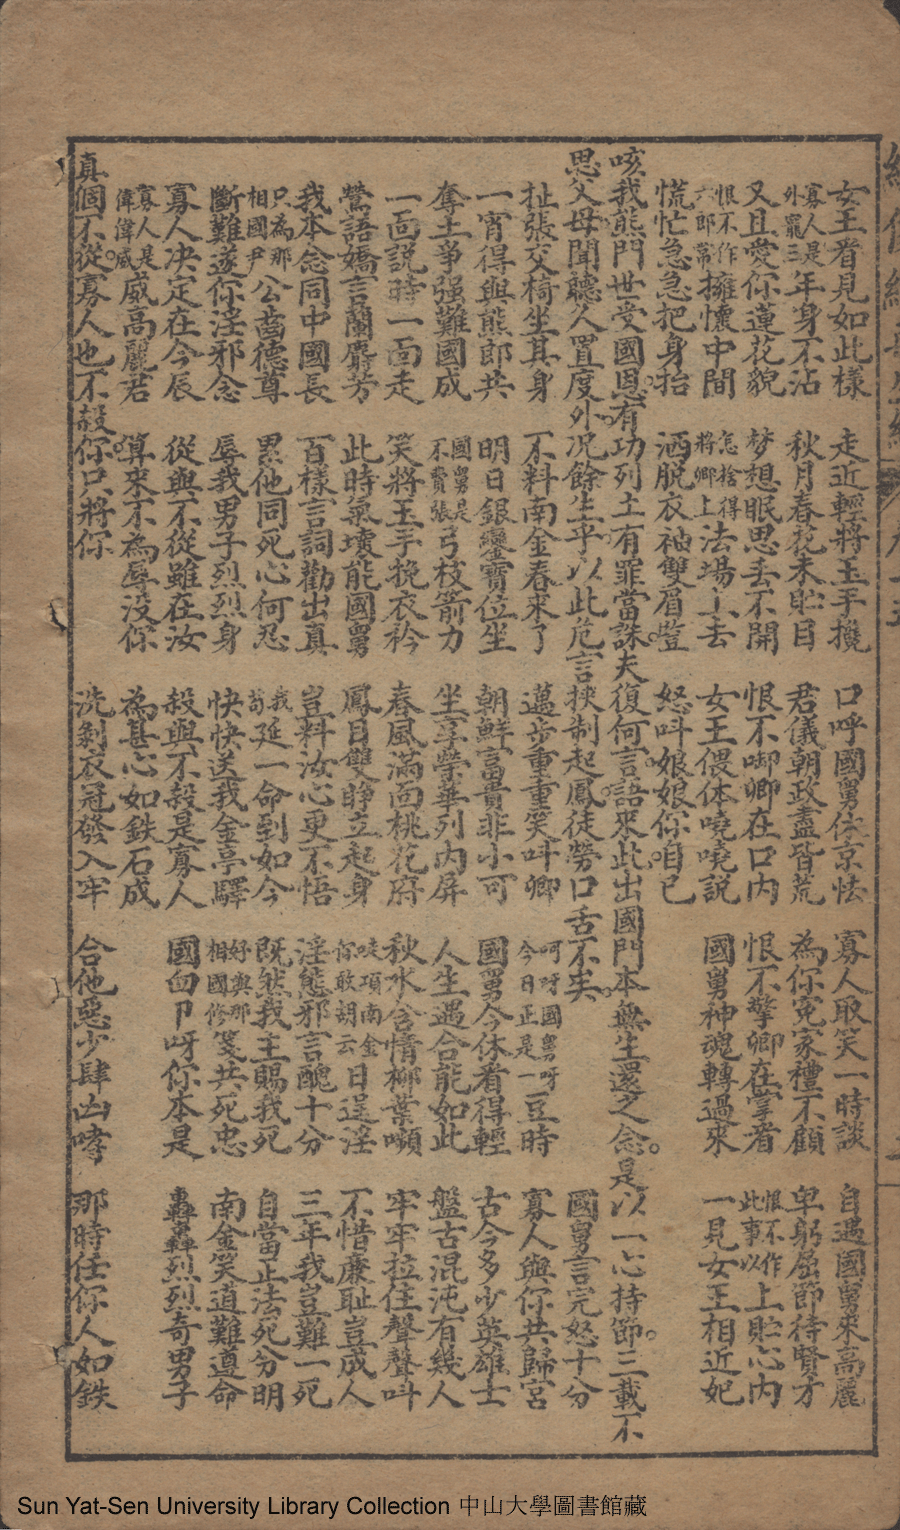 女王看見如此樣 走近輕將玉手攙 口呼國舅休京怯 寡人取笑一時談 自遇國舅來高麗
寡人是外寵三年身不沾 秋月春花未貯目 君儀朝政盡皆荒 為你冤家禮不顧 卑躬屈節待賢才
又且愛你蓮花貌 梦想眠思丢不開 恨不啣卿在口內 恨不擎卿在掌看 恨不作此事以上貯心內
恨不作六郎常擁懷中間 怎捨得將卿上法場上去 女王偎体嘵嘵説 國舅神魂轉過來 一見女王相近妃
慌忙急急把身抬 洒脱衣袖雙眉豎 怒呌娘娘你自已
咳我熊門世受國恩。有功列土有罪當誅。夫復何言。語來此出國門。本無生還之念。是以一心持節。三載不
思父母聞聽人置度外。况餘生乎。以此危言挾制起鳳徒勞口舌不矣。 國舅言完怒十分
扯張交椅坐其身 不料南金春來了 邁步重重笑呌卿 呵呀國舅呀今日正是一豆時 寡人與你共歸宮
一宵得與熊郎共 明日銀鑾寶位坐 朝鮮富貴非小可 國舅今休看得輕 古今多少英雄士
奪王爭强難國成 國舅是不費張弓枝箭力 坐享榮華列內屏 人生遇合能如此 盤古混沌有幾人
一面説時一面走 笑將玉手挽衣衿 春風滿面桃花府 秋水含情柳葉嚬 牢牢拉住聲聲呌
鶯語嬌言蘭麝芳 此時氣壞能國舅 鳳目雙睜立起身 唗項南金你敢胡云日逞淫 不惜廉耻豈成人
我本念同中國長 百樣言詞勸出真 豈料汝心更不悟 淫態邪言醜十分 三年我豈難一死
只為那相國尹公葛德尊 累他同死心何忍 我苟延一命到如今 既然我王賜我死 自當正法死分明
斷難遂你淫邪念 辱我男子烈烈身 快快送我金亭驛 好與那相國修箋共死忠 南金笑道難遵命
寡人决定在今辰 從與不從雖在汝 殺與不殺是寡人 國勇呀你本是 轟轟烈烈奇男子
寡人是偉偉威威高麗君 算來不為辱没你 為甚心如鉄石成
真個不從寡人也不殺你只將你 洗剝衣冠發入牢 合他惡少肆凶哮 那時任你人如鉄
Sun Yat-Sen University Library Collection 中山大學圖書館藏